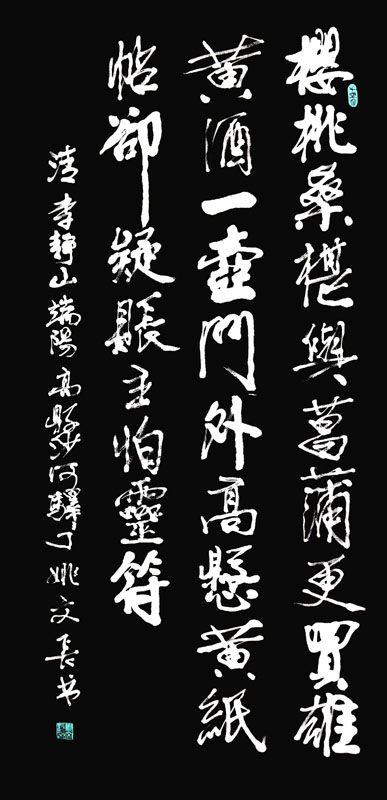 櫻桃桑椹與菖蒲更買雄
黄酒一壺門外高懸黄紙
帖卻疑賬主怕靈符
清李靜山端陽高縣沙河驛丁姚文長书